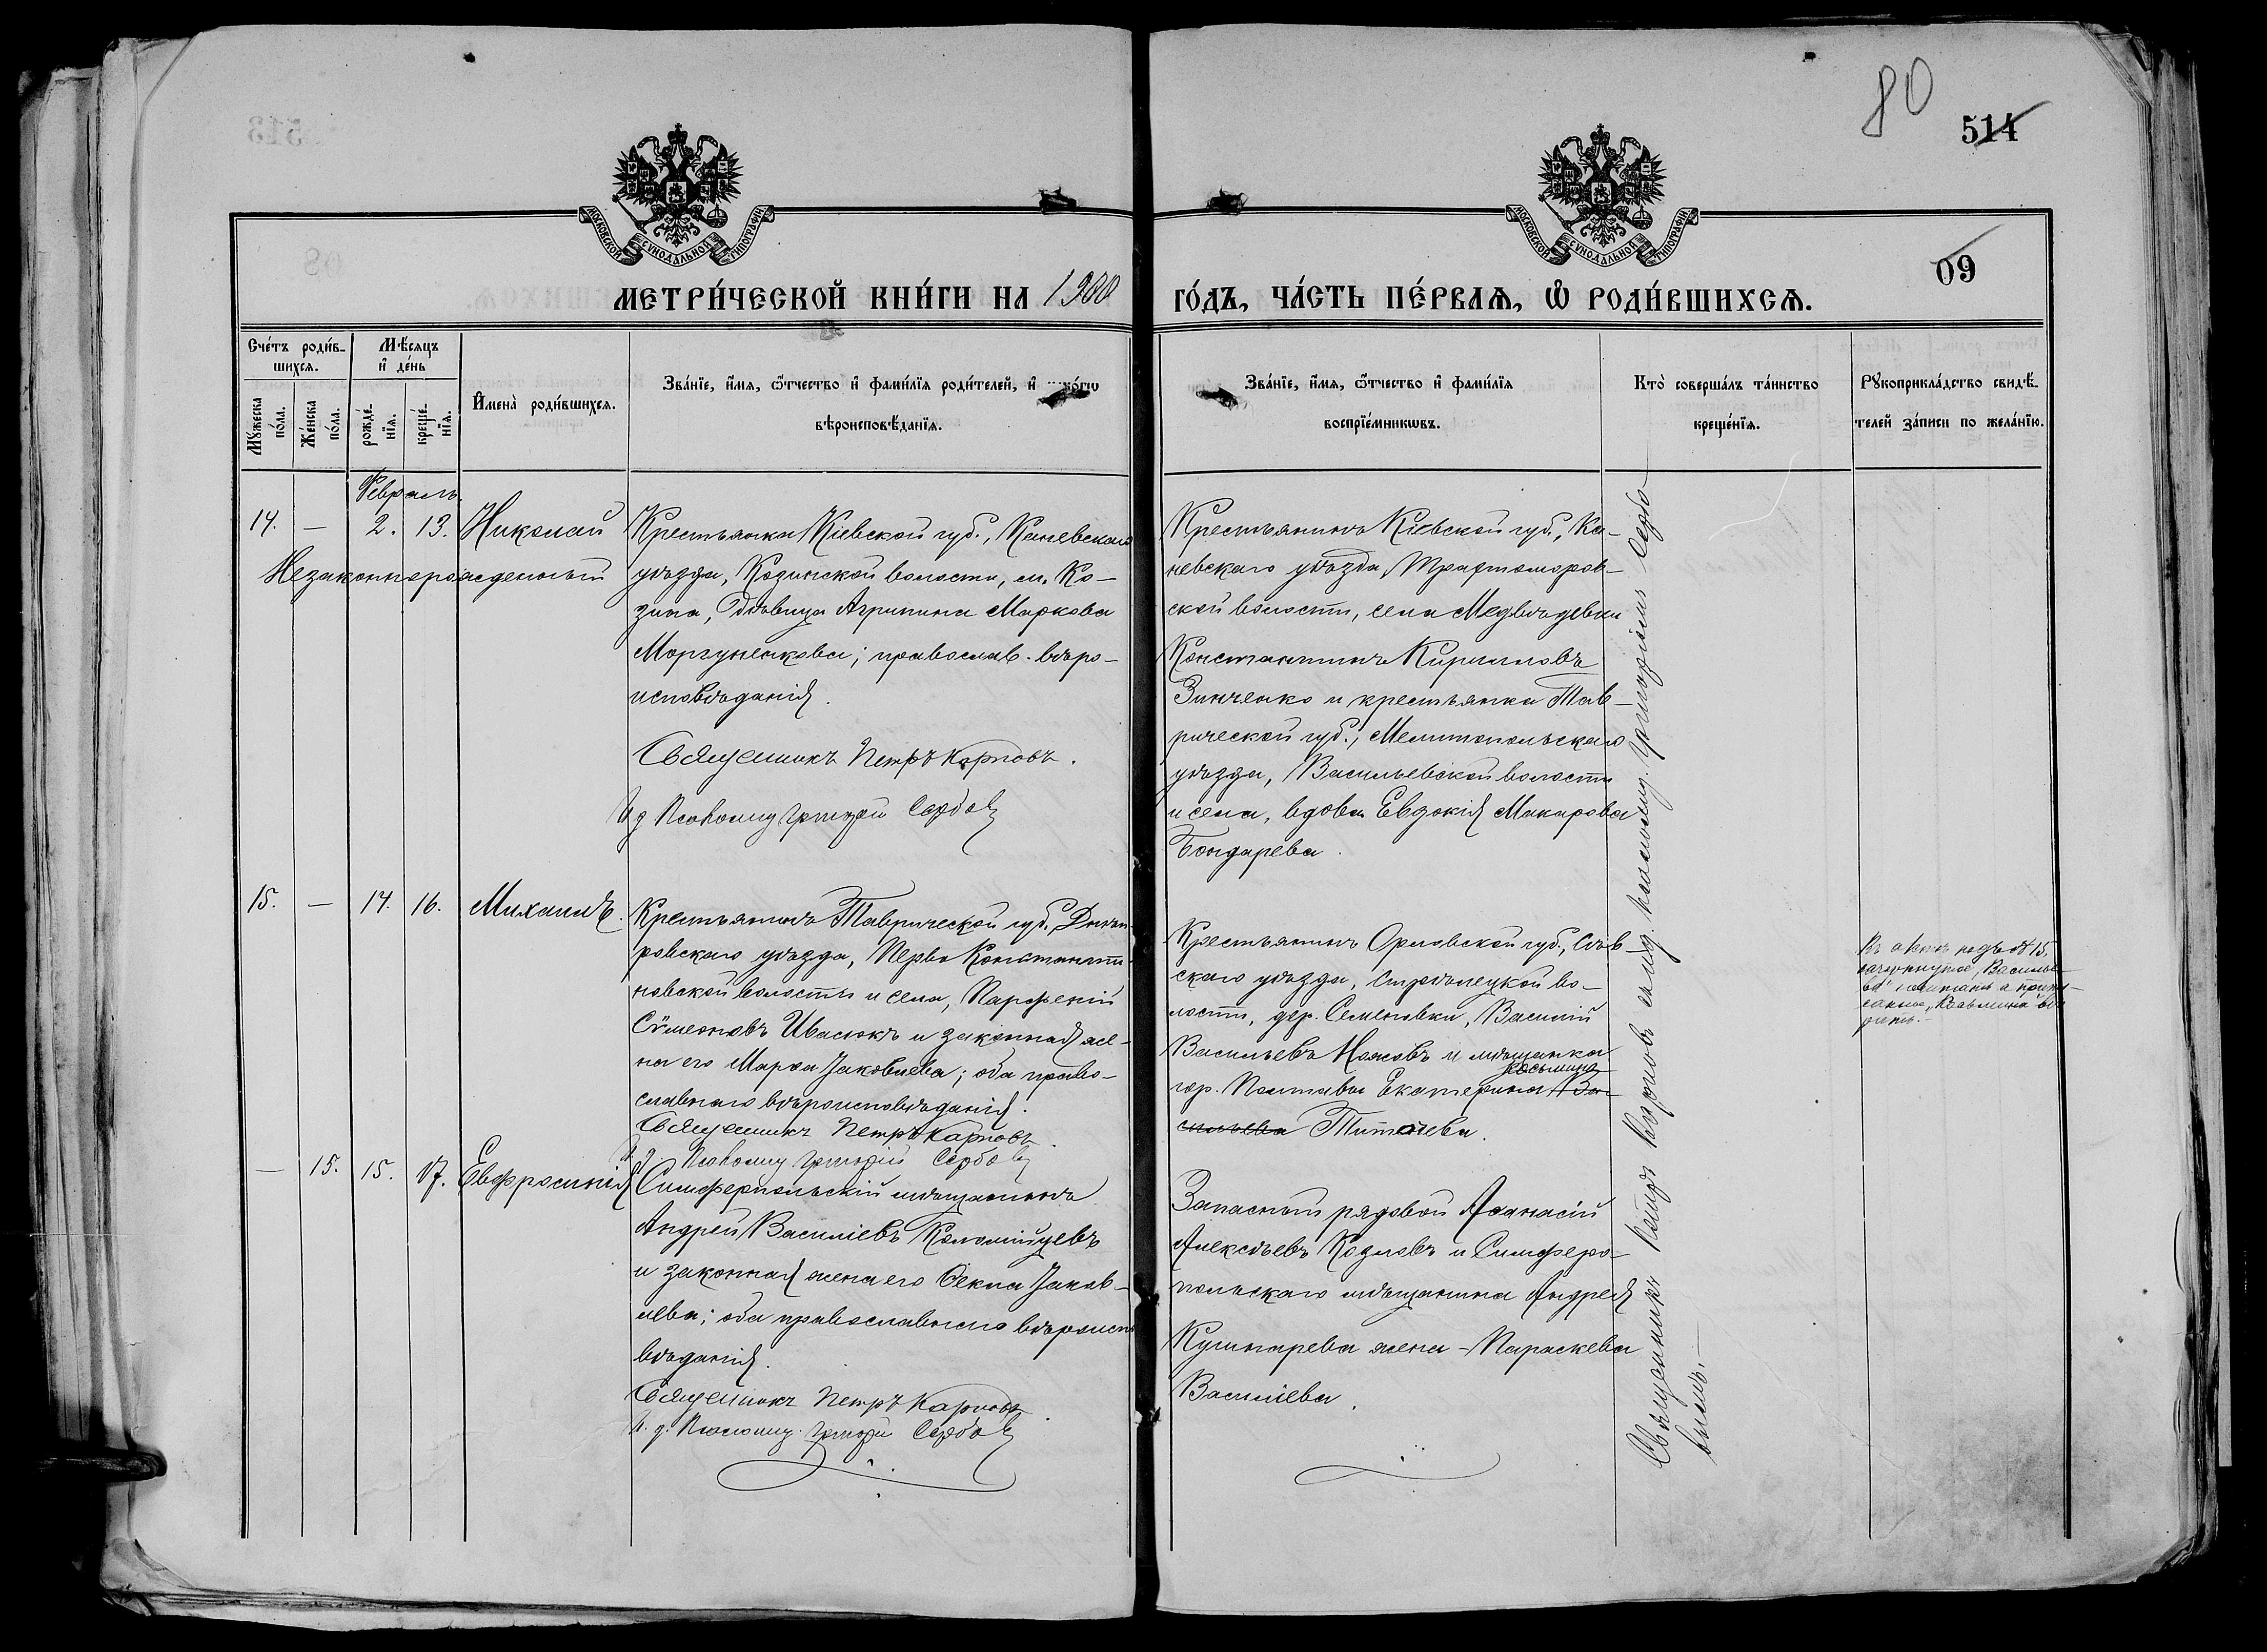 80
514
09
МОСКОВСКОЙ СѴНОДАЛЬНОЙ ТИПОГРАФІИ
МОСКОВСКОЙ СѴНОДАЛЬНОЙ ТИПОГРАФІИ
МЕТРИ́ЧЕСКОЙ КНИ́ГИ НА 1900
ГО́ДЪ, ЧА́СТЬ ПЕ́РВАѦ, Ѡ҆ РОДИ́ВШИХСѦ.
Сче́тъ роди́в-
шихся.
Мѣ́сяцъ
и҆ де́нь
Мꙋ́жеска
по́ла.
Же́нска
по́ла.
рожде́-
нїя.
креще́-
нїя.
И҆мена̀ роди́вшихся.
Зва́нїе, и҆́мя, ѻ҆́тчество и҆ фами́лїя роди́телей, и҆
вѣроисповѣ́данїя.
Зва́нїе, и҆́мя, ѻ҆́тчество и҆ фами́лїя
воспрїе́мникѡвъ.
Кто̀ соверша́лъ та́инство
креще́нїя.
Рꙋкоприкла́дство свидѣ́-
телей за́писи по жела́нїю.
Февраль.
14. — 2. 13. Николай
Незаконнорожденный
Крестьянка Кіевской губ., Каневскаго
уѣзда, Козинской волости, м. Ко-
зина, дѣвица Агрипина Маркова
Моргуненкова; православ. вѣро-
исповѣданія.
Священникъ Петръ Карповъ.
И д Псаломщ Григорій Сербовъ
Крестьянинъ Кіевской губ., Ка-
невскаго уѣзда,
ской волости, села Медвѣдевки
Константинъ Кирилловъ
Зинченко и крестьянка Тав-
рической губ., Мелитопольскаго
уѣзда, Васильевской волости
и села, вдова Евдокія Макарова
Бондарева.
15. — 14. 16. Михаилъ.
Крестьянинъ Таврической губ. Днѣп-
ровскаго уѣзда, Перво Константи-
новской волости и села, Парфеній
Сѵмеоновъ Ивасюкъ и законная же-
на его Марѳа Іаковлева; оба право-
славнаго вѣроисповѣданія.
Священникъ Петръ Карповъ.
И. д. Псаломщ Григорій Сербовъ
Крестьянинъ Орловской губ., Сѣв-
скаго уѣзда, Стрѣлецкой во-
лости, дер. Семеновки, Василій
Васильевъ Ноясовъ и мѣщанка
Косьмина
гор. Полтавы Екатерина Ва-
сильева Титаева.
Въ актѣ подъ № 15.
зачеркнутое „Василье-
ва" считать а припи-
санное „Косьмина" вѣ-
рить.—
— 15. 15. 17. Евфросинія
Симферопольскій мѣщанинъ
Андрей Василіевъ Коломійцевъ
и законная жена его Ѳекла Іаков-
лева; оба православнаго вѣроиспо-
вѣданія.
Священникъ Петръ Карповъ.
И. д. Псаломщ. Григорій Сербовъ
Запасный рядовой Аѳанасій
Алексѣевъ Козловъ и Симферо-
польскаго мѣщанина Андрея
Кушнарева жена - Параскева
Василіева.
Священникъ Петръ Карповъ съ и.д. псаломщ. Григоріемъ Сербо-
вымъ.—